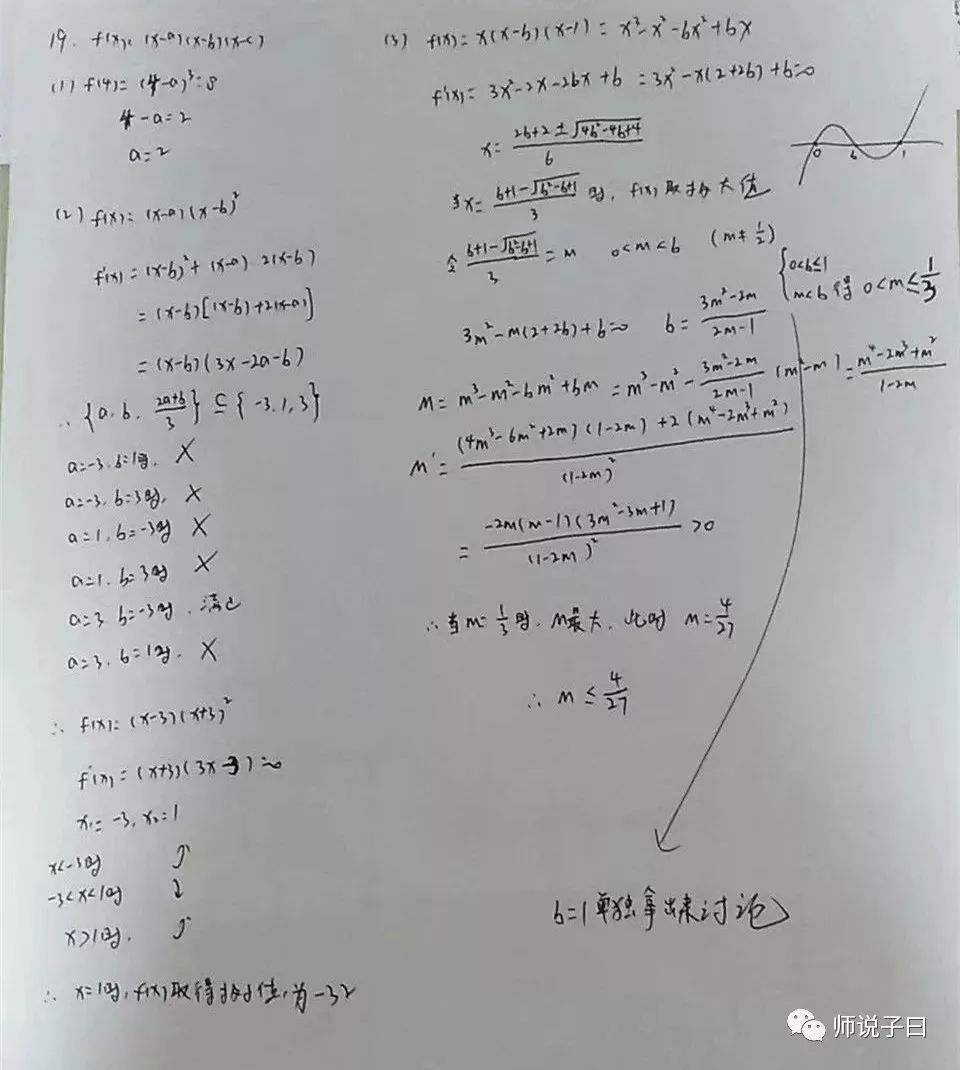 19. f(x)=(x-a)(x-b)(x-c)
(1) f(4)=(4-a)³=8
4-a=2
a=2
(2) f(x)=(x-a)(x-b)²
f'(x)=(x-b)²+(x-a)·2(x-b)
=(x-b)[(x-b)+2(x-a)]
=(x-b)(3x-2a-b)
∴{a,b,(2a+b)/3}⊆{-3,1,3}
a=-3,b=1时, ×
a=-3,b=3时, ×
a=1,b=-3时 ×
a=1,b=3时 ×
a=3,b=-3时,满足
a=3,b=1时, ×
∴f(x)=(x-3)(x+3)²
f'(x)=(x+3)(3x-3)=0
x₁=-3,x₂=1
x<-3时 ↗
-3<x<1时 ↓
x>1时, ↗
∴x=1时,f(x)取得极小值,为-32
(3) f(x)=x(x-b)(x-1)=x³-x²-bx²+bx
f'(x)=3x²-2x-2bx+b=3x²-x(2+2b)+b=0
x=(2b+2±√(4b²-4b+4))/6
0 b 1
当x=(b+1-√(b²-b+1))/3时,f(x)取极大值
令(b+1-√(b²-b+1))/3=m 0<m<b (m≠1/2)
{0<b≤1
m<b 得 0<m≤1/3
3m²-m(2+2b)+b=0 b=(3m²-2m)/(2m-1)
M=m³-m²-bm²+bm=m³-m²-(3m²-2m)/(2m-1)(m²-m)=(m⁴-2m³+m²)/(1-2m)
M'=((4m³-6m²+2m)(1-2m)+2(m⁴-2m³+m²))/(1-2m)²
=(-2m(m-1)(3m²-3m+1))/(1-2m)²>0
∴当m=1/3时,M最大,此时 M=4/27
∴M≤4/27
b=1单独拿出来讨论
师说子曰